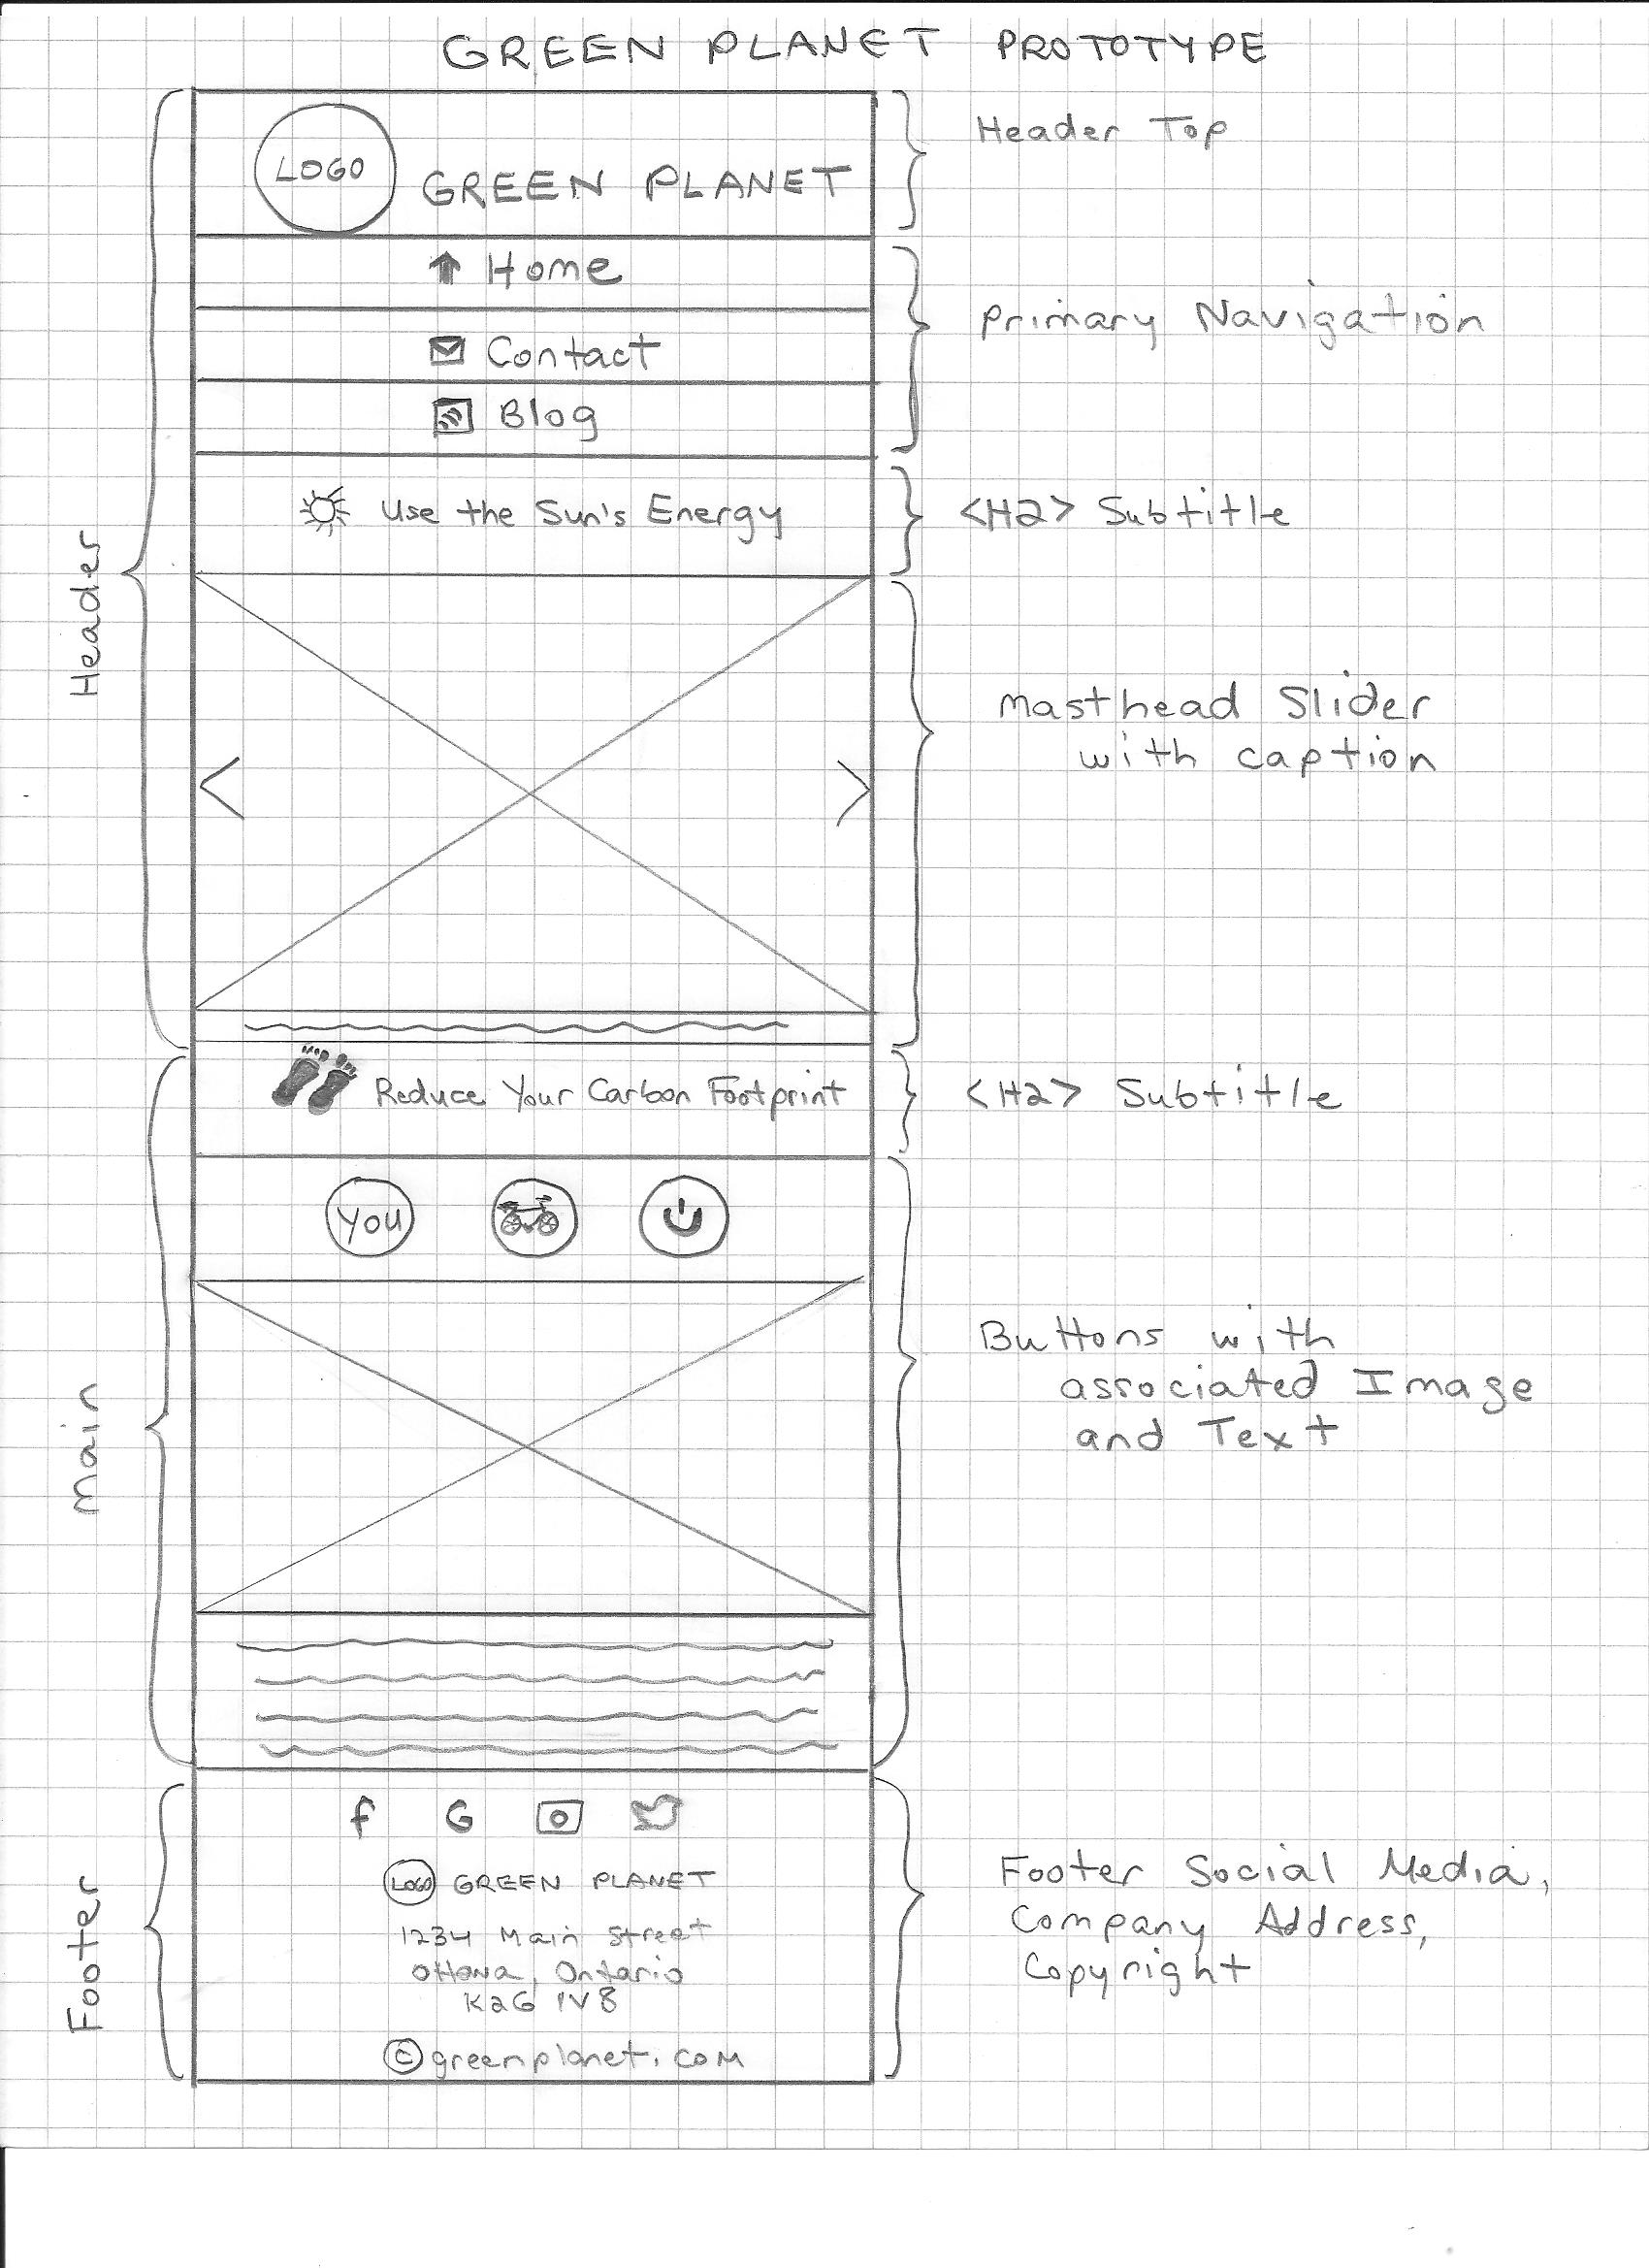 GREEN PLANET PROTOTYPE
LOGO
GREEN PLANET
Header Top
Home
Contact
Blog
Primary Navigation
Use the Sun's Energy
<H2> Subtitle
Header
Masthead Slider
with caption
Reduce Your Carbon Footprint
<H2> Subtitle
YOU
Buttons with
associated Image
and Text
Main
f G
LOGO GREEN PLANET
1234 Main Street
Ottawa, Ontario
K2G 1V8
©greenplanet.com
Footer Social Media,
Company Address,
Copyright
Footer